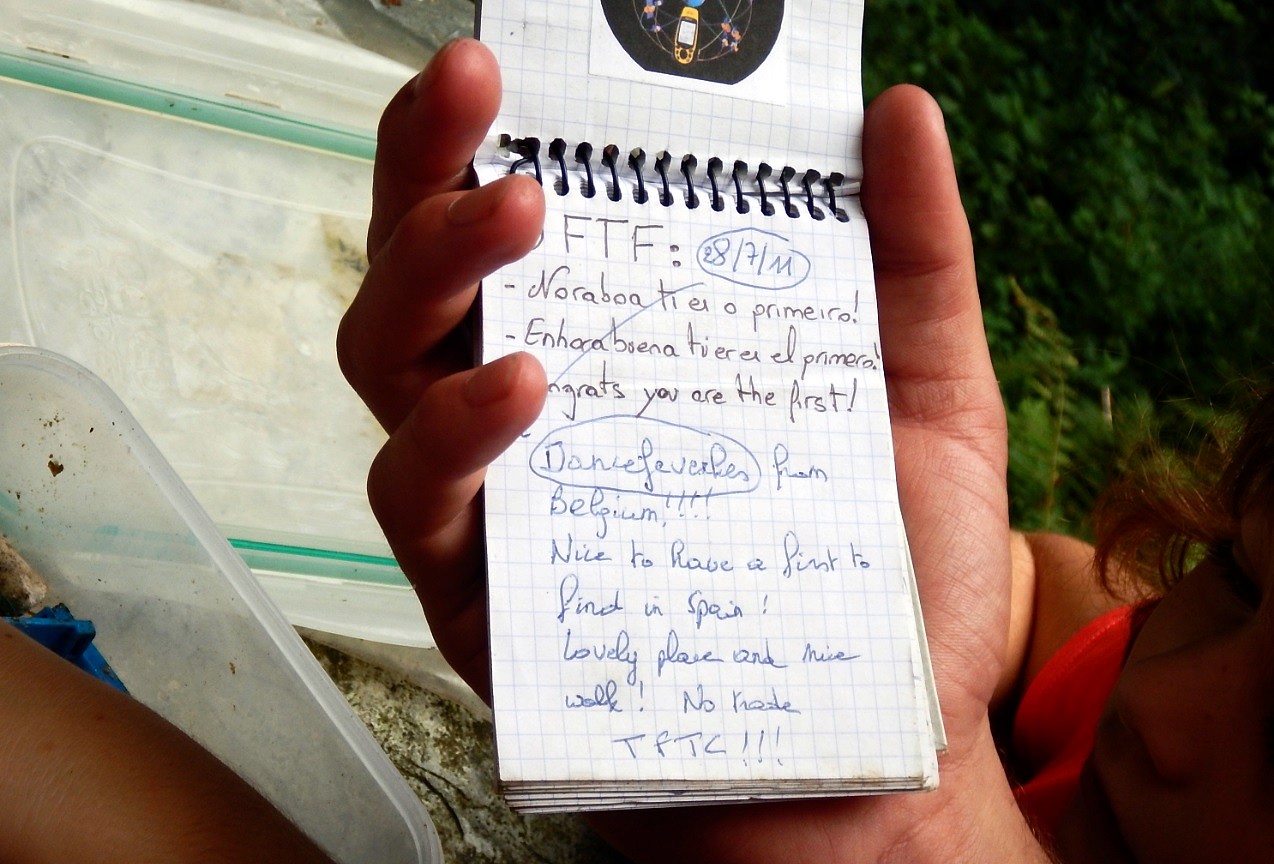 FTF: 28/7/11
- Noraboa ti es o primeiro!
- Enhorabuena tu eres el primero!
ngrats you are the first!
from
Belgium!!!!
Nice to have a first to
find in Spain!
Lovely place and nice
walk! No trade
TFTC!!!